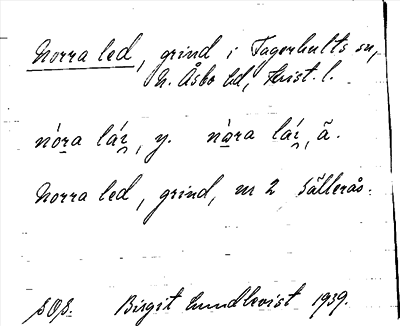 Norra led, grind i Fagerhults sn,
N. Åsbo hd, Krist. l.
nóra láɩ, y. nòra láɩ, ä.
Norra led, grind, nr 2 Sällerås.
SOS. Birgit Lundkvist 1939.